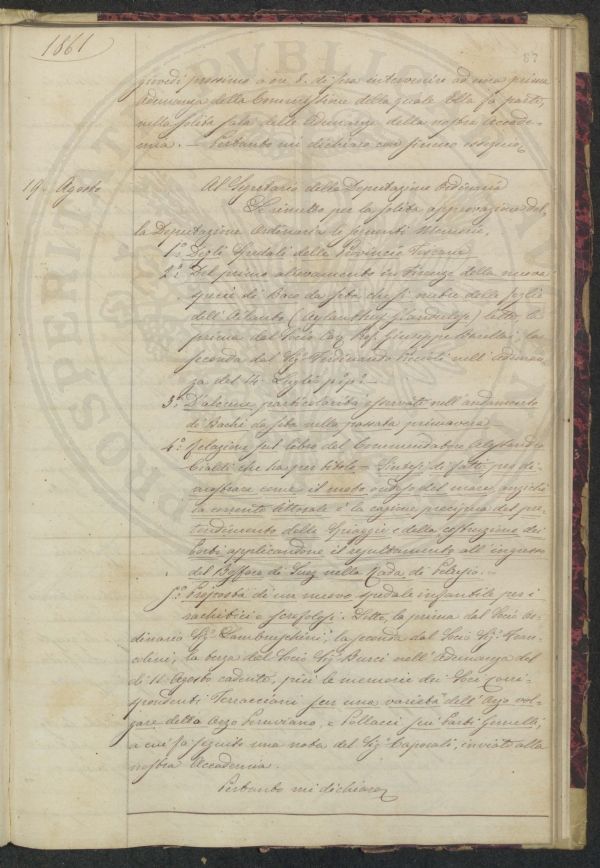 1861
87
giovedì prossimo a ore 8. di sera intervenire ad una prima
Adunanza della Commissione della quale Ella fa parte,
nella solita sala delle Adunanze della nostra Accade-
mia. — Pertanto mi dichiaro con sincero ossequio
19. Agosto
Al Segretario della Deputazione Ordinaria
Si rimette per la solita approvazione del-
la Deputazione Ordinaria le seguenti Memorie.
1.º Degli Spedali delle Provincie Toscane
2.º Del primo allevamento in Firenze della nuova
specie di Baco da seta che si nutre della foglia
dell'Ailanto (Aylanthus Glandulosa) lette, la
prima dal Socio Cav. Prof. Giuseppe la
seconda dal Sig. Ferdinando Piccioli nell'Adunan-
za del 14 Luglio p.º p.º —
3.º D'alcune particolarità osservate nell'andamento
di Bachi da seta nella passata primavera
4.º Relazione sul libro del Commendatore Alessandro
Cialdi che ha per titolo — di fatti per di-
mostrare come il moto ondoso del mare, anziché
la corrente littorale è la cagione precipua del pro-
tendimento delle Spiaggie e della ostruzione dei
Porti applicandone il resultamento all'ingresso
del Bosforo di Suez nella Rada di Pelusio. —
5.º Proposta di un nuovo spedale infantile per i
rachitici e scrofolosi. Lette, la prima dal Socio or-
dinario Sig. Lambruschini, la seconda dal Socio Sig.
la terza dal Socio Sig. Burci nell'Adunanza del
dì 11 Agosto cadente, più le memorie dei Soci Corri-
spondenti Terracciani per una varietà dell'Orzo vol-
gare detta Orzo Peruviano, e Pollacci sui Parti Gemelli,
a cui fa seguito una nota del Sig. Caporali, inviate alla
nostra Accademia.
Pertanto mi dichiaro